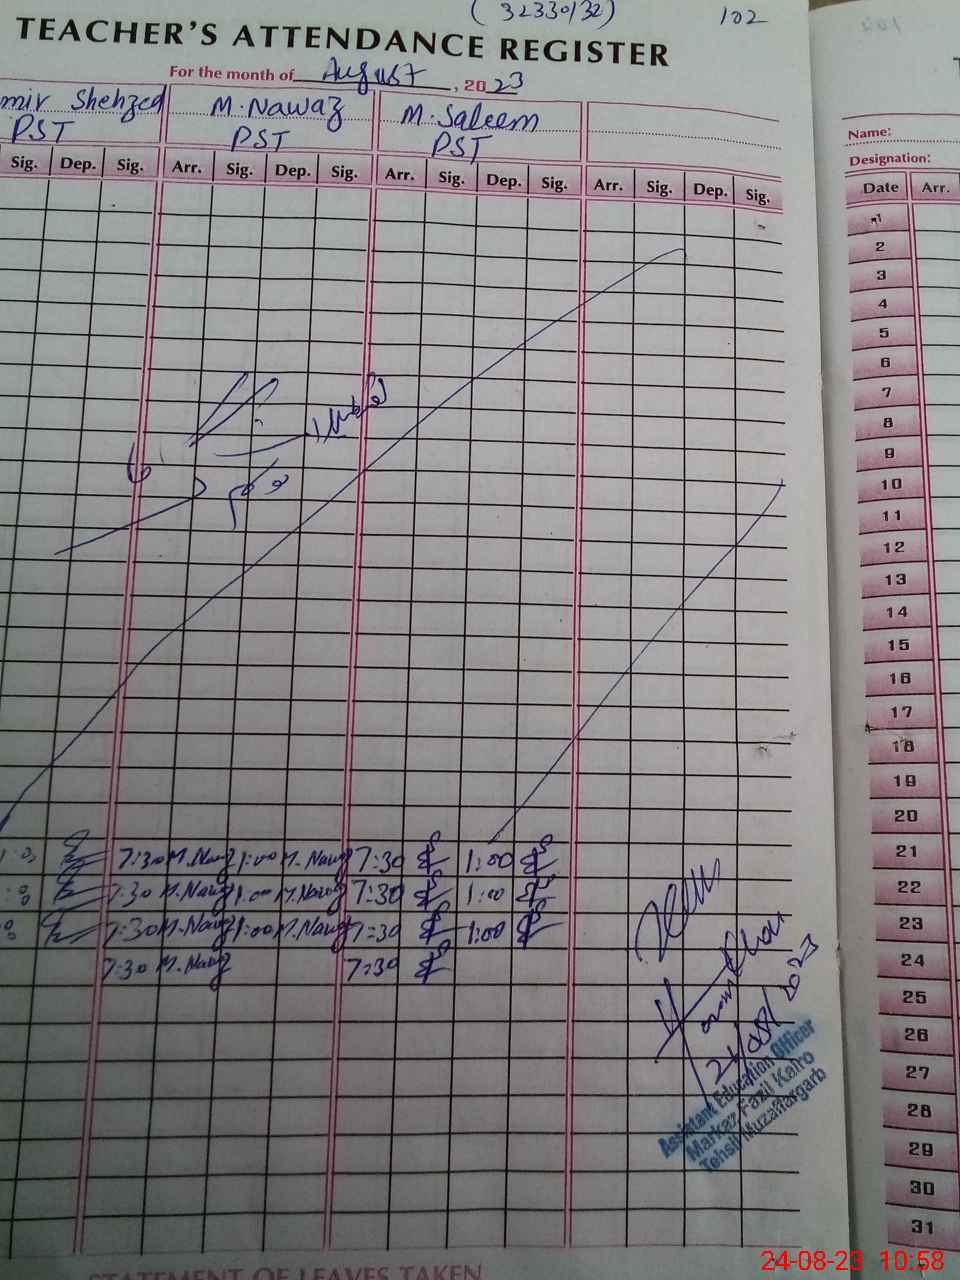 (32330132)
102
TEACHER'S ATTENDANCE REGISTER
For the month of August, 2023
mir Shehzed M.Nawaz M.Saleem
PST PST PST
Name:
Designation:
Sig. Dep. Sig. Arr. Sig. Dep. Sig. Arr. Sig. Dep. Sig. Arr. Sig. Dep. Sig.
Date Arr.
1
2
3
4
5
6
7
8
9
10
11
12
13
14
15
16
17
18
19
20
7:30 M.Nawaz 1:00 M.Nawaz 7:30 1:00 21
7:30 M.Nawaz 1:00 M.Nawaz 7:30 1:00 22
7:30 M.Nawaz 1:00 M.Nawaz 7:30 1:00 23
7:30 M.Nawaz 7:30 24
25
26
27
28
29
30
31
Assistant Education Officer
Markaz Fazil Kalro
Tehsil Muzaffargarh
STATEMENT OF LEAVES TAKEN
24-08-23 10:58